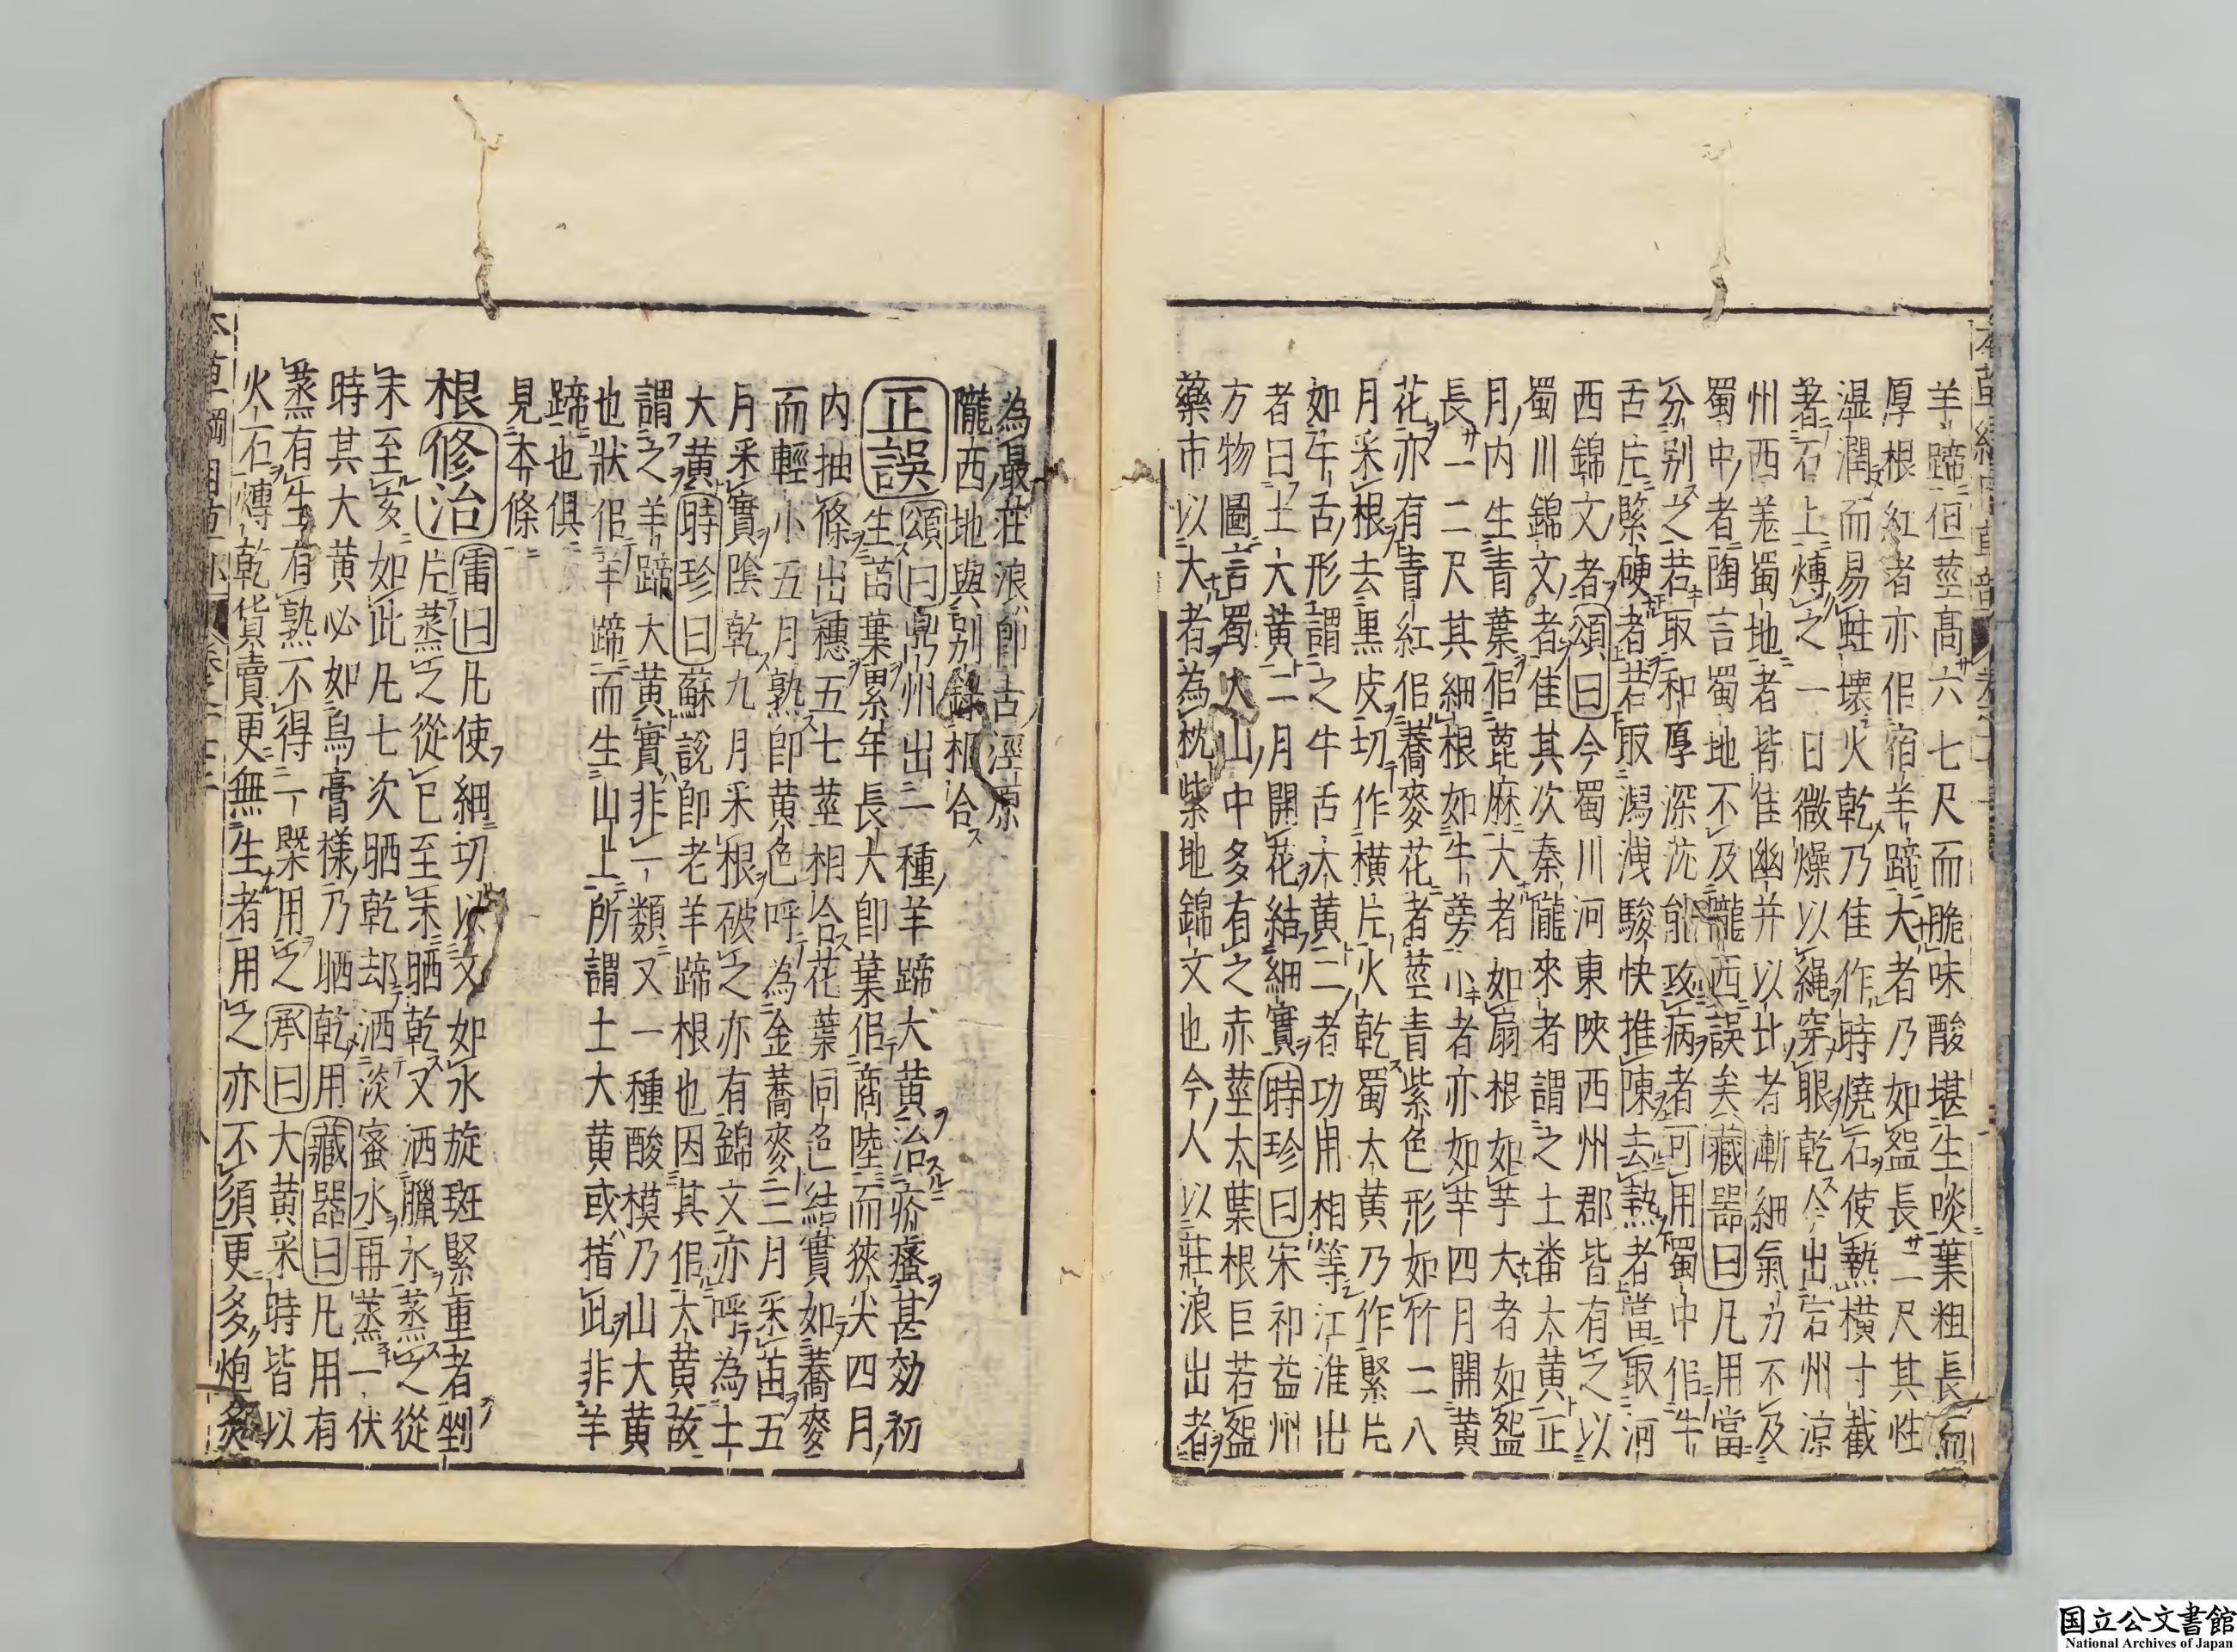 羊蹄但莖高六七尺而脆味酸堪生啖葉粗長而
厚根紅者亦佀宿羊蹄大者乃如盌長二尺其性
湿潤而易蛀壊火乾乃佳作時燒石使熱横寸截
著石上煿之一日微燥以繩穿眼乾今出宕州涼
州西羗蜀地者皆佳幽并以北者漸細氣力不及
蜀中者陶言蜀地不及隴西誤矣藏噐曰凡用當
分别之若取和厚深沉能攻病者可用蜀中佀牛
舌片緊硬者若取瀉洩駿快推陳去熱者當取河
西錦文者頌曰今蜀川河東陜西州郡皆有之以
蜀川錦文者佳其次秦隴來者謂之土畨大黄正
月内生青葉佀蓖麻大者如扇根如芋大者如盌
長一二尺其細根如牛蒡小者亦如芋四月開黄
花亦有青紅佀蕎麥花者莖青紫色形如竹二八
月采根去黒皮切作横片火乾蜀大黄乃作緊片
如牛舌形謂之牛舌大黄二者功用相等江淮出
者曰土大黄二月開花結細實時珍曰宋祁益州
方物圖言蜀大山中多有之赤莖大葉根巨若盌
藥市以大者為枕紫地錦文也今人以莊浪出者
為最莊浪即古涇原
隴西地與别録相合
正誤頌曰鼎州出一種羊蹄大黄治疥瘙甚効初
生苗葉累年長大即葉佀商陸而狹尖四月
内抽條出穗五七莖相合花葉同色結實如蕎麥
而輕小五月熟即黄色呼為金蕎麥三月采苗五
月釆實陰乾九月采根破之亦有錦文亦呼為土
大黄時珍曰蘇說即老羊蹄根也因其佀大黄故
謂之羊蹄大黄實非一類又一種酸模乃山大黄
也狀佀羊蹄而生山上所謂土大黄或指此非羊
蹄也俱
見本條
根修治雷曰凡使細切以文如水旋斑緊重者剉
片蒸之從巳至未晒乾又洒臘水蒸之從
未至亥如此凡七次晒乾却洒淡蜜水再蒸一伏
時其大黄必如烏膏樣乃晒乾用藏器曰凡用有
蒸有生有熟不得一槩用之承曰大黄采時皆以
火石煿乾貨賣更無生者用之亦不須更多炮炙
国立公文書館
National Archives of Japan